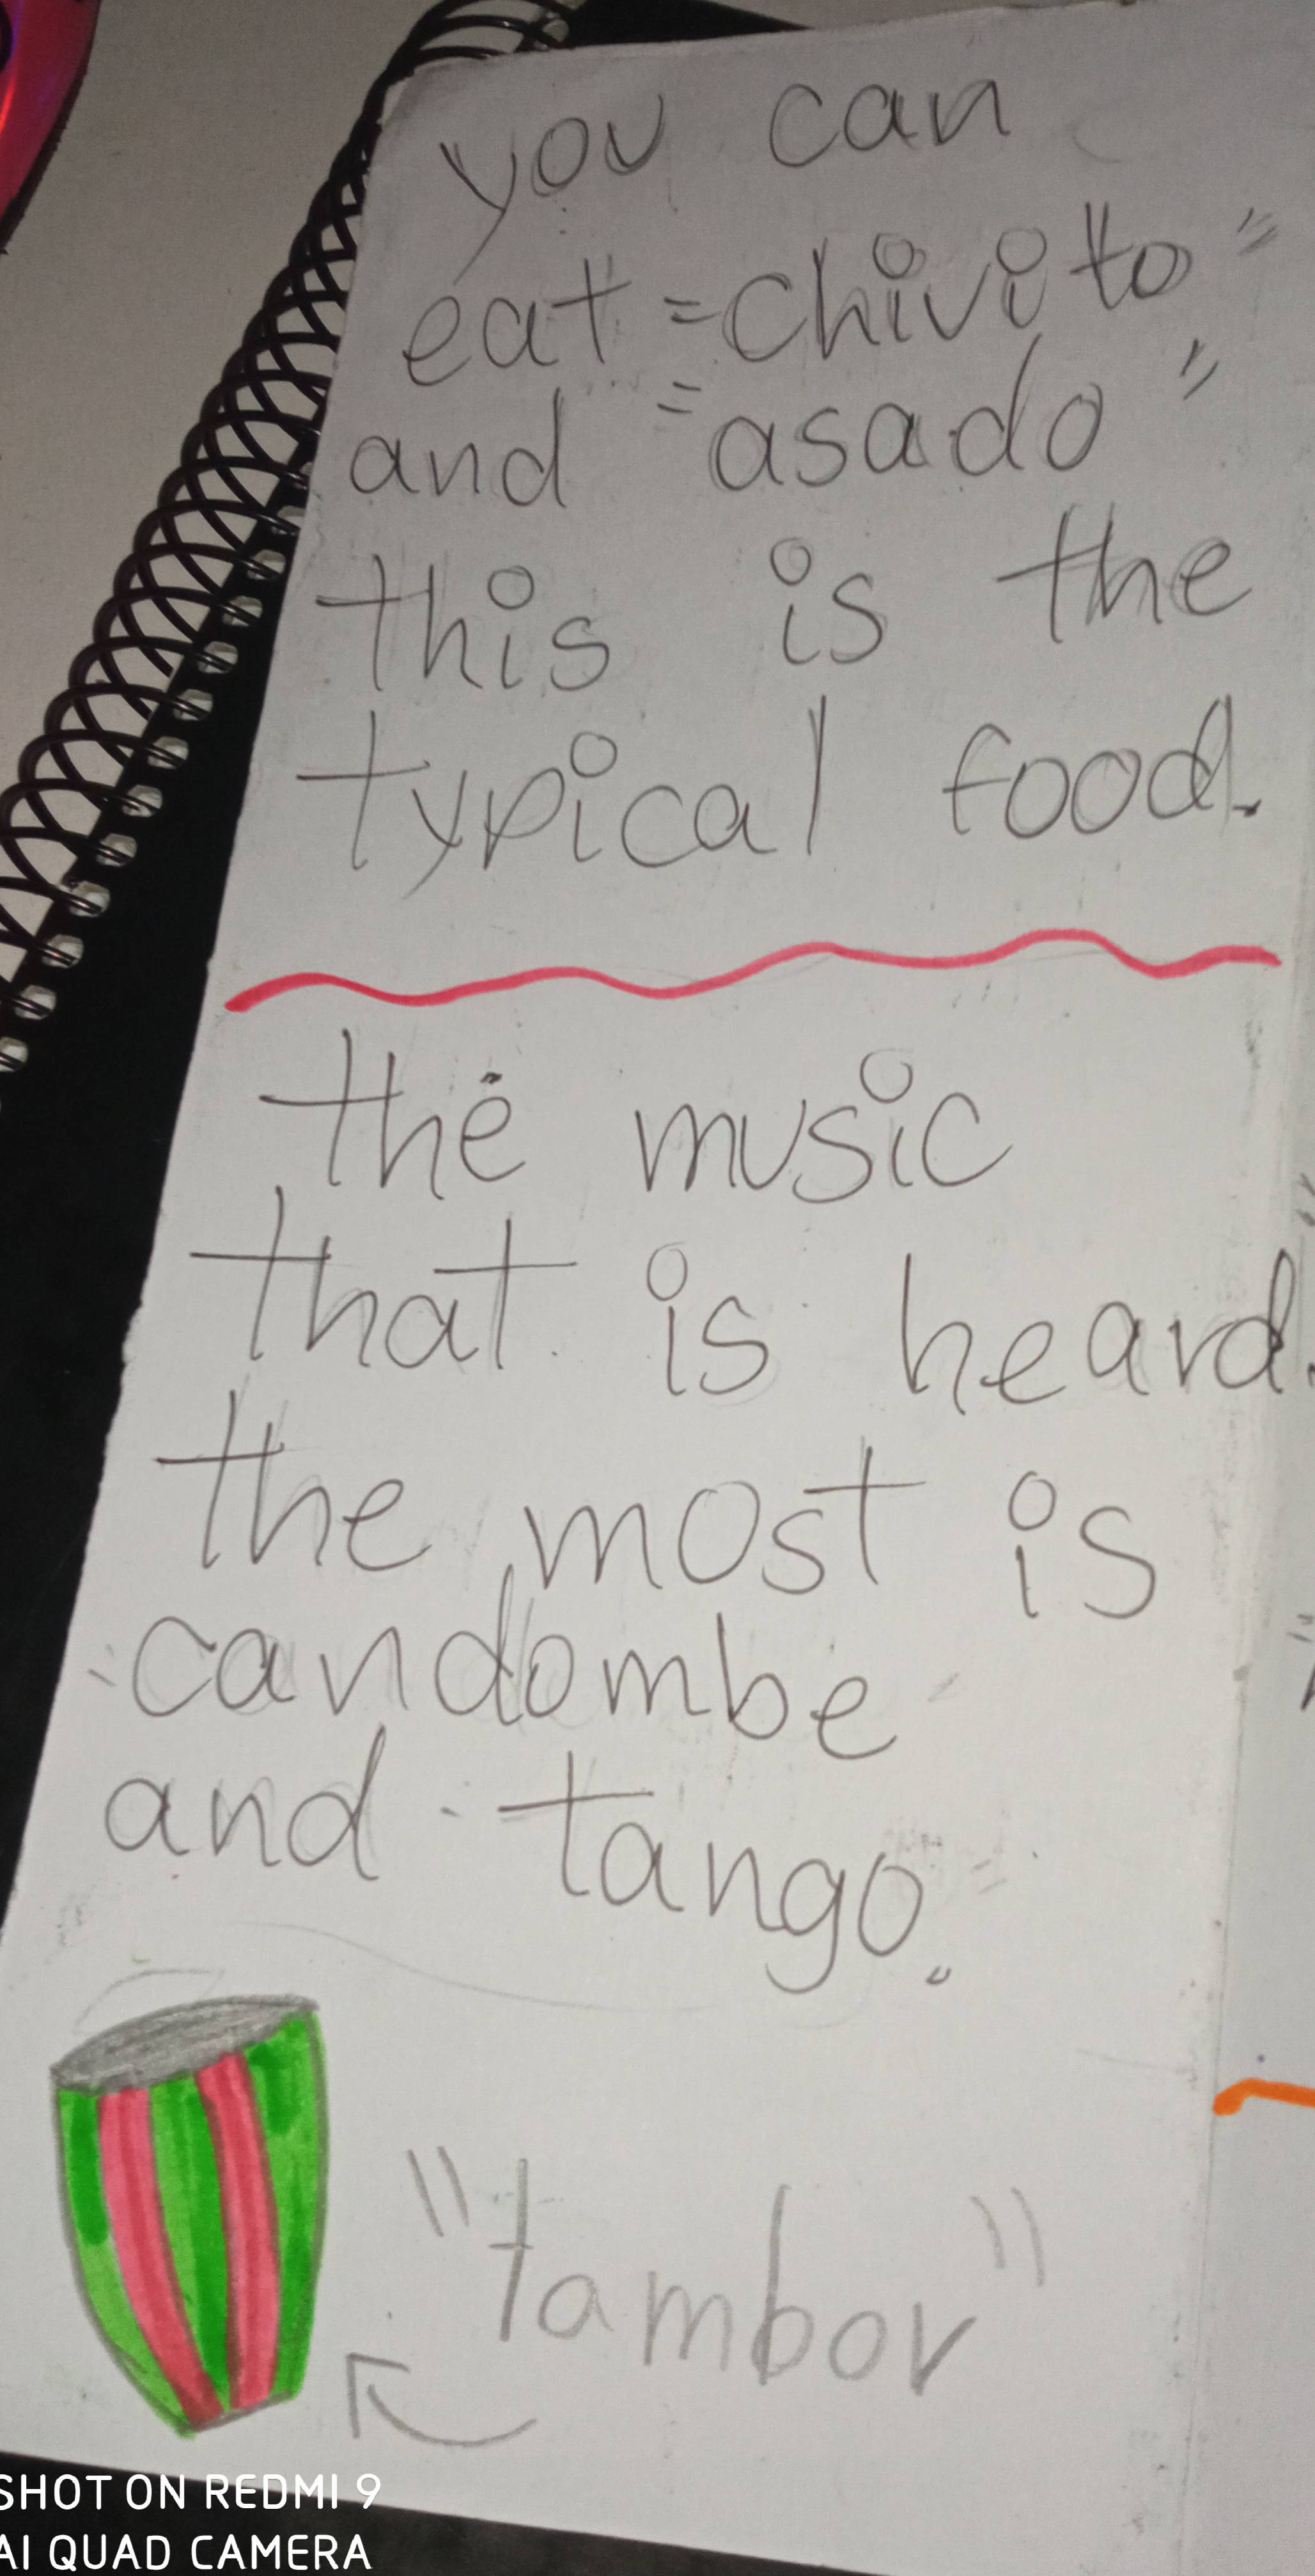 you can
eat "chivito"
and "asado"
this is the
typical food.
the music
that is heard
the most is
"candombe"
and "tango".
"tambor"
SHOT ON REDMI 9
AI QUAD CAMERA